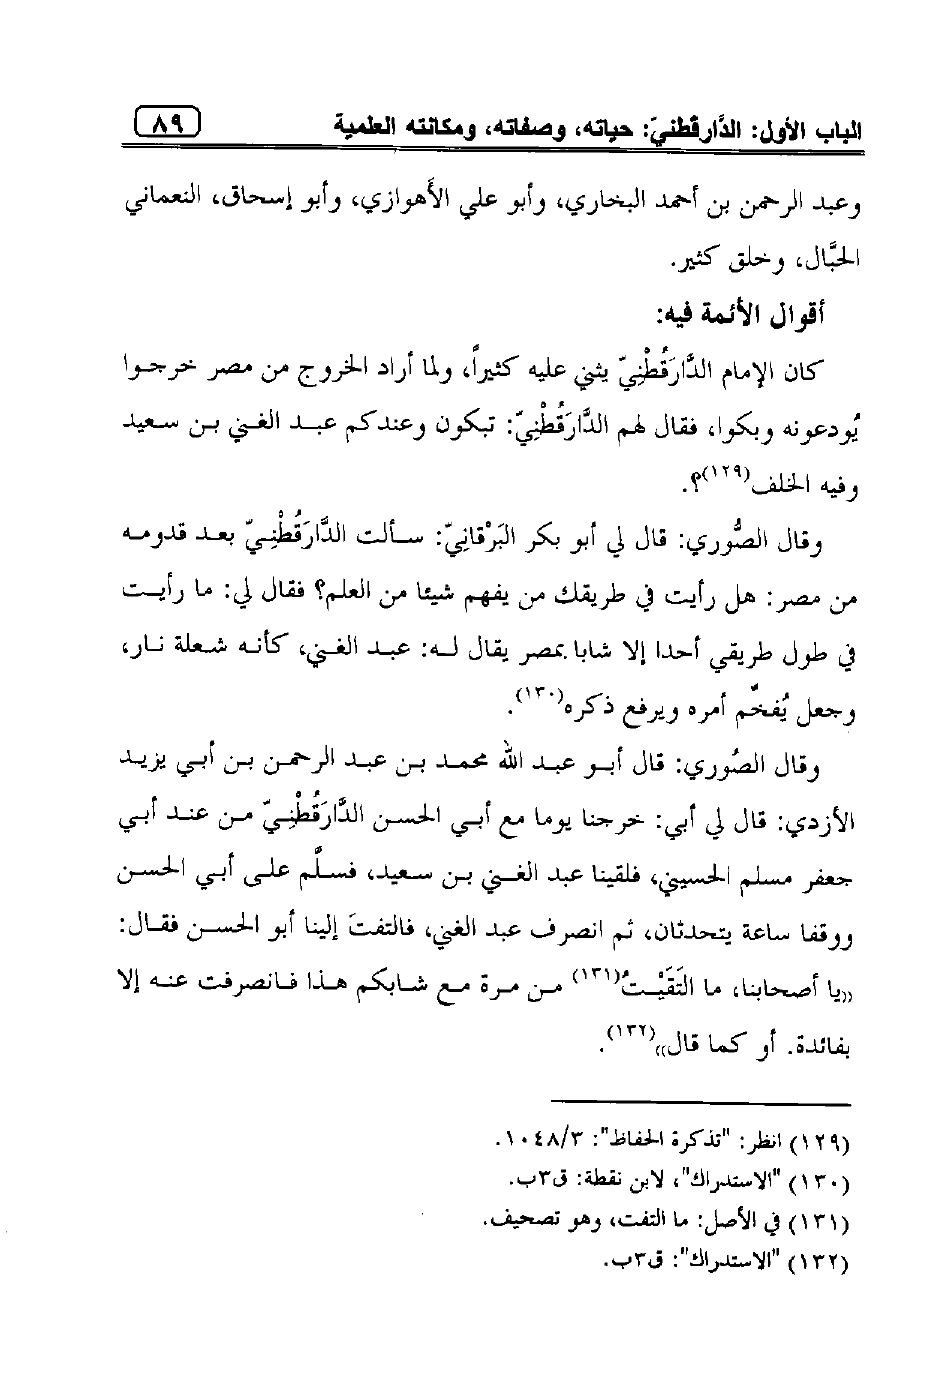 الباب الأول: الدَّارقطنيّ: حياته، وصفاته، ومكانته العلمية ٨٩
وعبد الرحمن بن أحمد البخاري، وأبو علي الأهوازي، وأبو إسحاق، النعماني
الحبَّال، وخلق كثير.
أقوال الأئمة فيه:
كان الإمام الدَّارَقُطْنِيّ يثني عليه كثيراً، ولما أراد الخروج من مصر خرجوا
يُودعونه وبكوا، فقال لهم الدَّارَقُطْنِيّ: تبكون وعندكم عبد الغني بن سعيد
وفيه الخلف(١٢٩)؟.
وقال الصُّوري: قال لي أبو بكر البَرْقانِيّ: سألت الدَّارَقُطْنِيّ بعد قدومه
من مصر: هل رأيت في طريقك من يفهم شيئا من العلم؟ فقال لي: ما رأيت
في طول طريقي أحدا إلا شابا بمصر يقال له: عبد الغني، كأنه شعلة نار،
وجعل يُفخِّم أمره ويرفع ذكره(١٣٠).
وقال الصُّوري: قال أبو عبد الله محمد بن عبد الرحمن بن أبي يزيد
الأزدي: قال لي أبي: خرجنا يوما مع أبي الحسن الدَّارَقُطْنِيّ من عند أبي
جعفر مسلم الحسيني، فلقينا عبد الغني بن سعيد، فسلَّم على أبي الحسن
ووقفا ساعة يتحدثان، ثم انصرف عبد الغني، فالتفتَ إلينا أبو الحسن فقال:
«يا أصحابنا، ما التَقَيْتُ(١٣١) من مرة مع شابكم هذا فانصرفت عنه إلا
بفائدة. أو كما قال»(١٣٢).
(١٢٩) انظر: "تذكرة الحفاظ": ١٠٤٨/٣.
(١٣٠) "الاستدراك"، لابن نقطة: ق٣ب.
(١٣١) في الأصل: ما التفت، وهو تصحيف.
(١٣٢) "الاستدراك": ق٣ب.